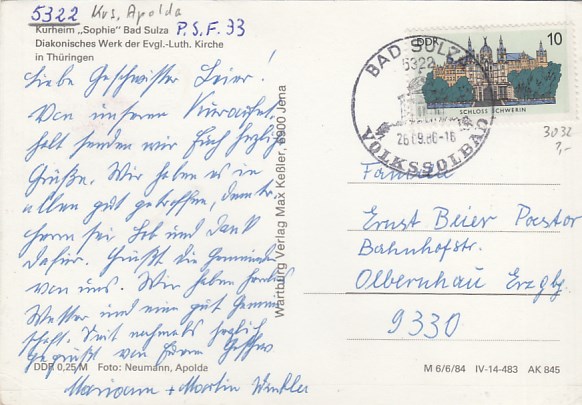 5322 Krs. Apolda
Kurheim „Sophie" Bad Sulza P.S.F. 33
Diakonisches Werk der Evgl.-Luth. Kirche
in Thüringen
Liebe Geschwister Beier!
Von unserem Kuraufent-
halt senden wir Euch herzliche
Grüße. Wir haben es in
allem gut getroffen, dem
Herrn sei Lob und Dank
dafür. Grüßt die Gemeinde
von uns. Wir haben
Wetter und eine gut Gemein-
schaft. Seit nochmals herzlich
gegrüßt von Euren Geschw.
Mariann + Martin Winkler
DDR 0,25 M Foto: Neumann, Apolda
Wartburg Verlag Max Keßler, 6900 Jena
DDR 10
SCHLOSS SCHWERIN
BAD SULZA
5322
26.09.86-16
VOLKSSOLBAD
3032
?,-
Familie
Ernst Beier Pastor
Bahnhofstr.
Olbernhau Erzgb.
9330
M 6/6/84 IV-14-483 AK 845